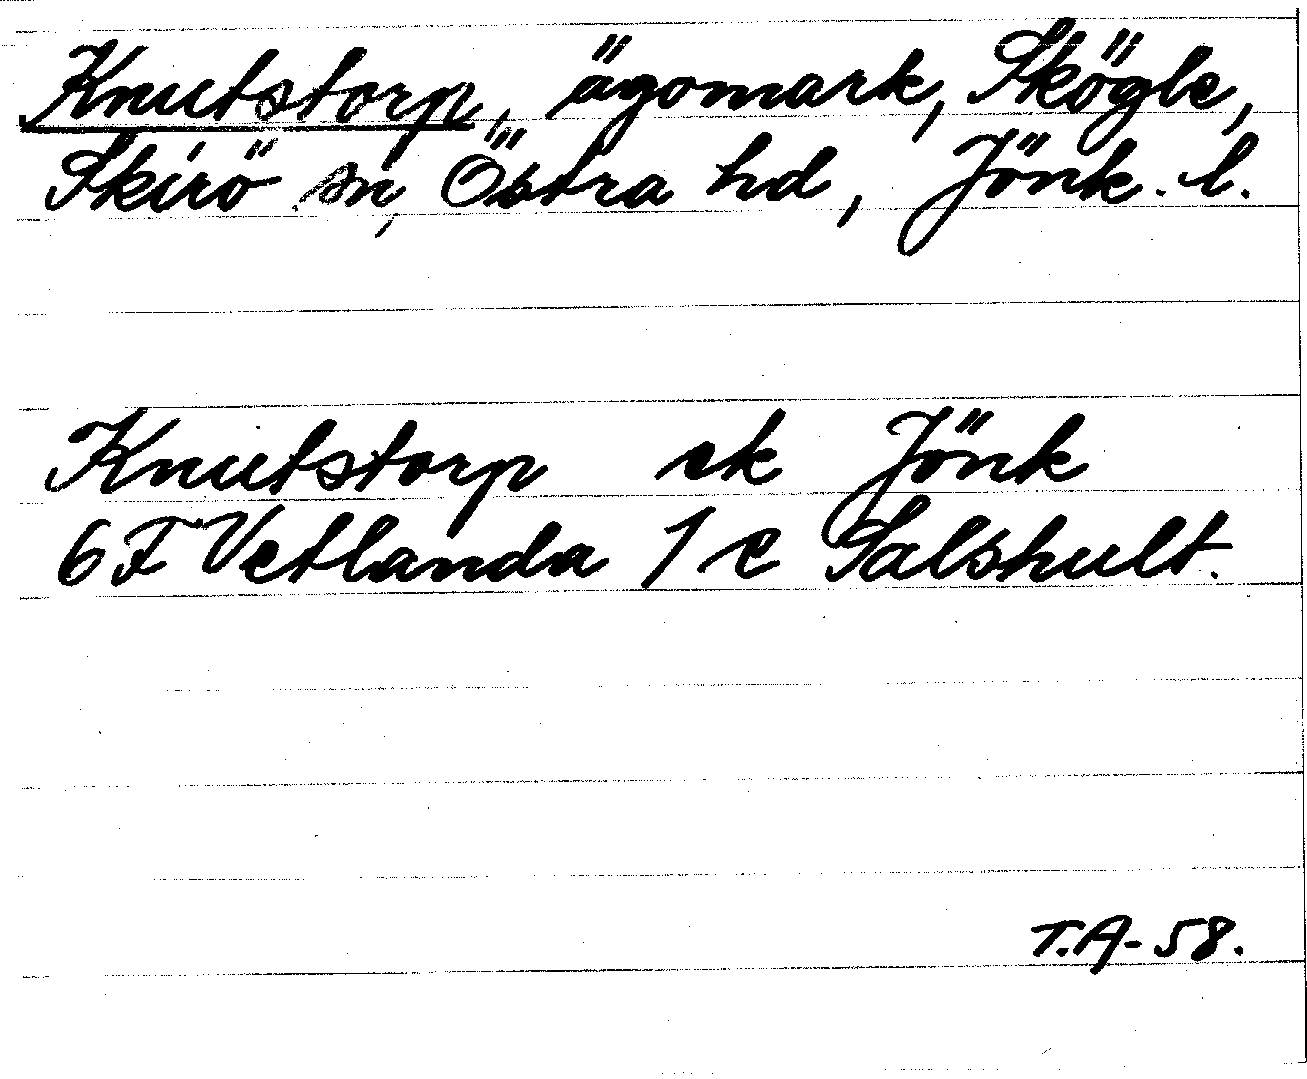 Knutstorp, ägomark, Skögle,
Skirö sn, Östra hd, Jönk. l.
Knutstorp ek Jönk
6F Vetlanda 1 e Salshult.
T.A-58.